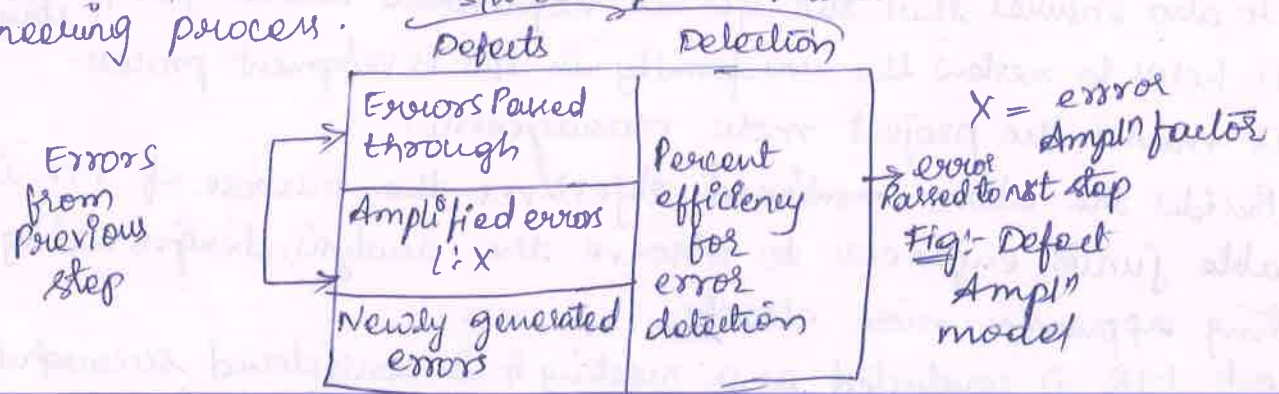 neering process.
Defects Detection
Errors from Previous step
Errors Passed through
Amplified errors 1:X
Newly generated errors
Percent efficiency for error detection
error Passed to nxt step
X = error Ampln factor
Fig:- Defect Ampln model